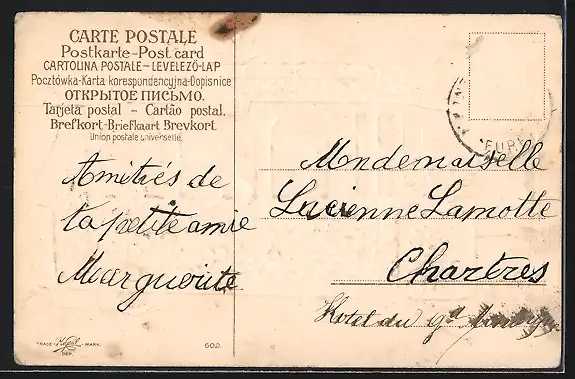 CARTE POSTALE
Postkarte-Post card
CARTOLINA POSTALE-LEVELEZŐ-LAP
Pocztówka-Karta korespondencyjna-Dopisnice
ОТКРЫТОЕ ПИСЬМО.
Tarjeta postal - Cartão postal.
Brefkort-Briefkaart Brevkort.
Union postale universelle.
Amitiés de
ta petite amie
Marguerite
TRADE MARK.
DEP.
602
EURE
Mademoiselle
Lucienne Lamotte
Chartres
Hotel du gd